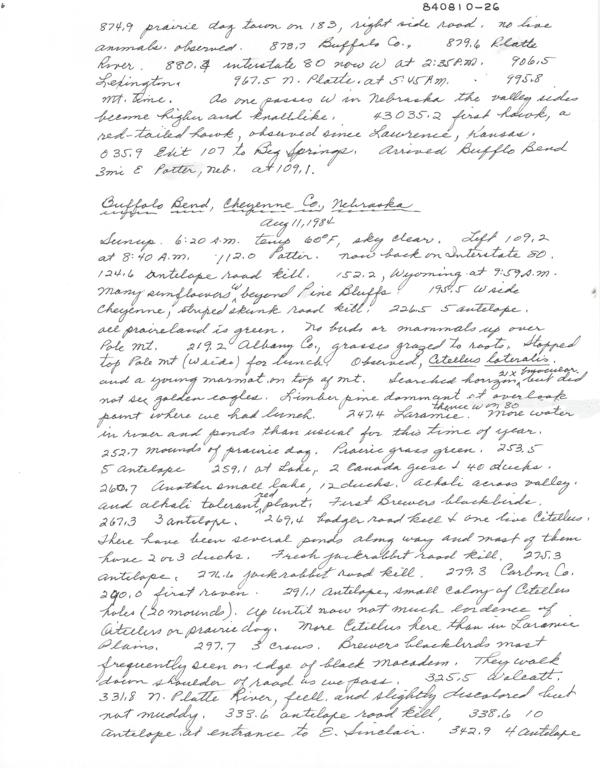 840810-26
874.9 prairie dog town on 183, right side road. no live
animals observed. 878.7 Buffalo Co., 879.6 Platte
River. 880.8 interstate 80 now W at 2:35 P.M. 906.5
Lexington. 967.5 N. Platte. at 5:45 P.M. 995.8
Mt. time. As one passes W in Nebraska the valley sides
become higher and knoblike. 43035.2 first hawk, a
red-tailed hawk, observed since Lawrence, Kansas.
035.9 Exit 107 to Big Springs. Arrived Bufflo Bend
3mi E Potter, Neb. at 109.1.
Buffalo Bend, Cheyenne Co., Nebraska
Aug 11, 1984
Sunup 6:20 A.M. temp 60°F, sky clear. Left 109.2
at 8:40 A.M. 112.0 Potter. now back on Interstate 80.
124.6 antelope road kill. 152.2, Wyoming at 9:59 A.M.
Many sunflowers beyond Pine Bluffs. 195.5 W side
Cheyenne, striped skunk road kill. 226.5 5 antelope.
all praireland is green. No birds or mammals up over
Pole Mt. 219.2 Albany Co., grasses grazed to roots. Stopped
top Pole Mt (W side) for lunch. Observed, Citellus lateralis.
and a young marmot on top of mt. Searched horizon, 21x binocular, but did
not see golden eagles. Limber pine dominant at overlook
point where we had lunch. 247.4 Laramie. thence W on 80 More water
in river and ponds than usual for this time of year.
252.7 mounds of prairie dog. Prairie grass green. 253.5
5 antelope 259.1 at Lake, 2 Canada geese & 40 ducks.
260.7 Another small lake, 12 ducks. alkali across valley.
and alkali tolerant red plant. First Brewers blackbirds.
267.3 3 antelope. 269.4 badger road kill & one live Citellus.
There have been several ponds along way and most of them
have 2 or 3 ducks. Fresh jackrabbit road kill. 275.3
antelope. 276.6 jackrabbit road kill. 279.3 Carbon Co.
290.0 first raven. 291.1 Antelope, small colony of Citellus
holes (20 mounds). Up until now not much evidence of
Citellus or prairie dog. More Citellus here than in Laramie
Plains. 297.7 3 crows. Brewers blackbirds most
frequently seen on edge of black macadem. They walk
down shoulder of road as we pass. 325.5 Walcott.
331.8 N. Platte River, full and slightly discolored but
not muddy. 333.6 antelope road kill, 338.6 10
Antelope at entrance to E. Sinclair. 342.9 4 antelope